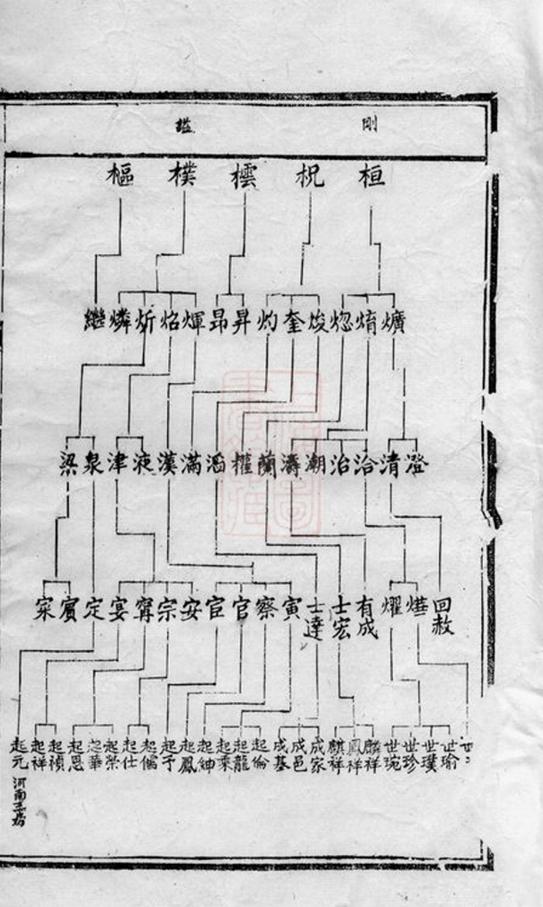 剛鑑
桓 柷 橒 樸 樞
爌 焴 焧 焌 奎 灼 昇 昂 煇 焰 炘 燐 繼
澄 清 洽 治 潮 濤 蘭 權 滔 滿 漢 液 津 泉 梁
回赦 燁 燿 有成 士宏 士達 寅 察 官 宦 安 宗 甯 宴 定 賓 寀
世瑜 世璞 世珍 世琬 麟祥 鳳祥 麒祥 成家 成邑 成基 起倫 起龍 起秉 起紳 起鳳 起予 起儒 起仕 起榮 起華 起恩 起禎 起祥 起元
河南